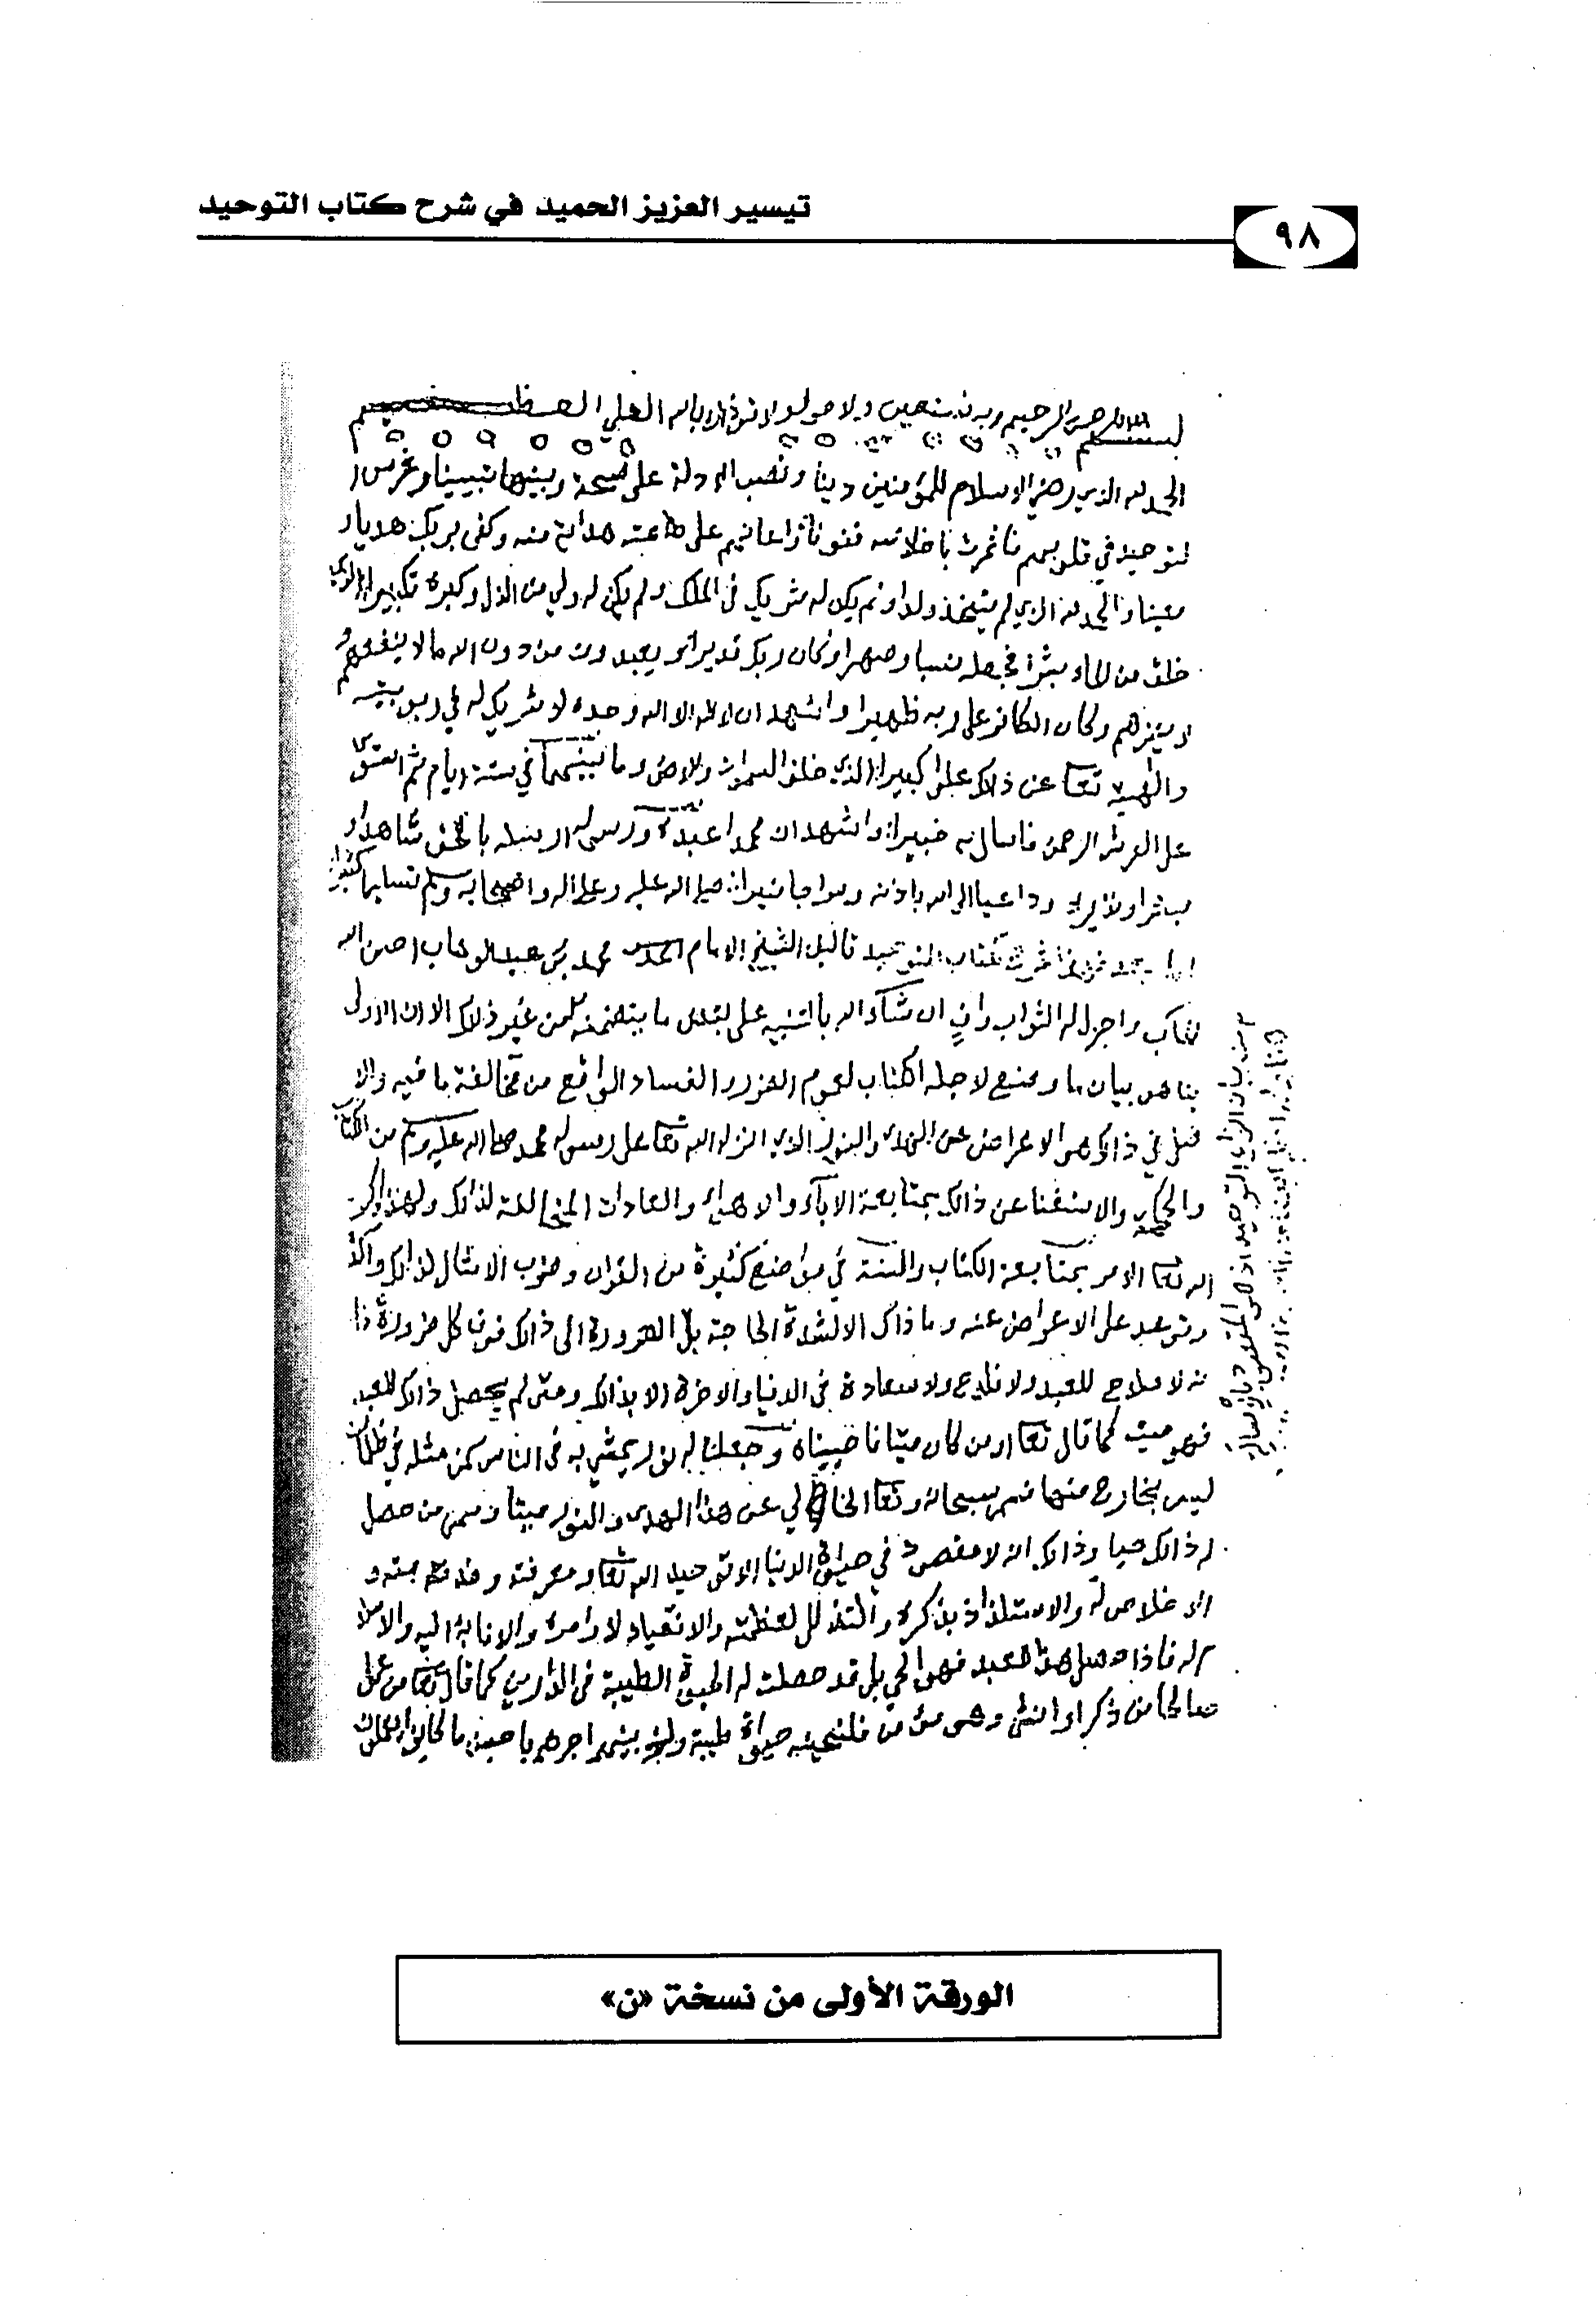 تيسير العزيز الحميد في شرح كتاب التوحيد
٩٨
بسم الله الرحمن الرحيم وبه نستعين ولا حول ولا قوة الا بالله العلي العظيم
الحمد لله الذي رضي الاسلام للمؤمنين دينا ونصب الادلة على صحته وبينها تبيينا وغرس ا
لتوحيد في قلوبهم فاثمرت باخلاصه فنونا واعانهم على طاعته هداية منه وكفى بربك هديا و
معينا والحمد لله الذي لم يتخذ ولدا ولم يكن له شريك في الملك ولم يكن له ولي من الذل وكبره تكبيرا الذي
خلق من الماء بشرا فجعله نسبا وصهرا وكان ربك قديرا ويعبدون من دون الله ما لا ينفعهم و
لا يضرهم وكان الكافر على ربه ظهيرا واشهد ان لا اله الا الله وحده لا شريك له في ربوبيته
والهيته تعا عن ذلك علوا كبيرا الذي خلق السموات والارض وما بينهما في ستة ايام ثم استوى
على العرش الرحمن فاسال به خبيرا واشهد ان محمدا عبده ورسوله ارسله بالحق شاهدا و
مبشرا ونذيرا وداعيا الى الله باذنه وسراجا منيرا صلى الله عليه وعلى اله واصحابه وسلم تسليما كثيرا
اما بعد كتاب التوحيد تاليف الشيخ الامام محمد بن عبد الوهاب احسن الله
له المآب واجزل له الثواب وان شاء الله بالتنبيه على بعض ما يتضمنه من غير ذلك الا ان الاولى
بنا هو بيان ما وضع لاجله الكتاب لعموم الضرر والفساد الواقع من مخالفة ما فيه والا
صل في ذلك هو الاعراض عن الهدى والنور الذي انزله الله تعا على رسوله محمد صلى الله عليه وسلم من الكتاب
والحكمة والاستغنا عن ذلك بمتابعة الآباء والاهواء والعادات المخالفة لذلك ولهذا كرر
الله تعا الامر بمتابعة الكتاب والسنة في مواضع كثيرة من القران وضرب الامثال لذلك واكد
وتوعد على الاعراض عنه وما ذاك الا لشدة الحاجة بل الضرورة الى ذلك فوق كل ضرورة فا
نه لا صلاح للعبد ولا فلاح ولا سعادة في الدنيا والاخرة الا بذلك ومتى لم يحصل ذلك للعبد
فهو ميت كما قال تعا اومن كان ميتا فاحييناه وجعلنا له نورا يمشي به في الناس كمن مثله في ظلمات
ليس بخارج منها فسمى سبحانه وتعا الخالي عن هذا الهدى والنور ميتا وسمى من حصل
له ذلك حيا وذلك انه لا مقصود في حياة الدنيا الا توحيد الله تعا ومعرفته وخدمته و
الاخلاص له والاستلذاذ بذكره والتذلل لعظمته والانقياد لاوامره والانابة اليه والاسلا
م له فاذا حصل هذا للعبد فهو الحي بل قد حصلت له الحيوة الطيبة في الدارين كما قال تعا من عمل
صالحا من ذكر او انثى وهو مؤمن فلنحيينه حيوة طيبة ولنجزينهم اجرهم باحسن ما كانوا يعملون
الورقة الأولى من نسخة «ن»